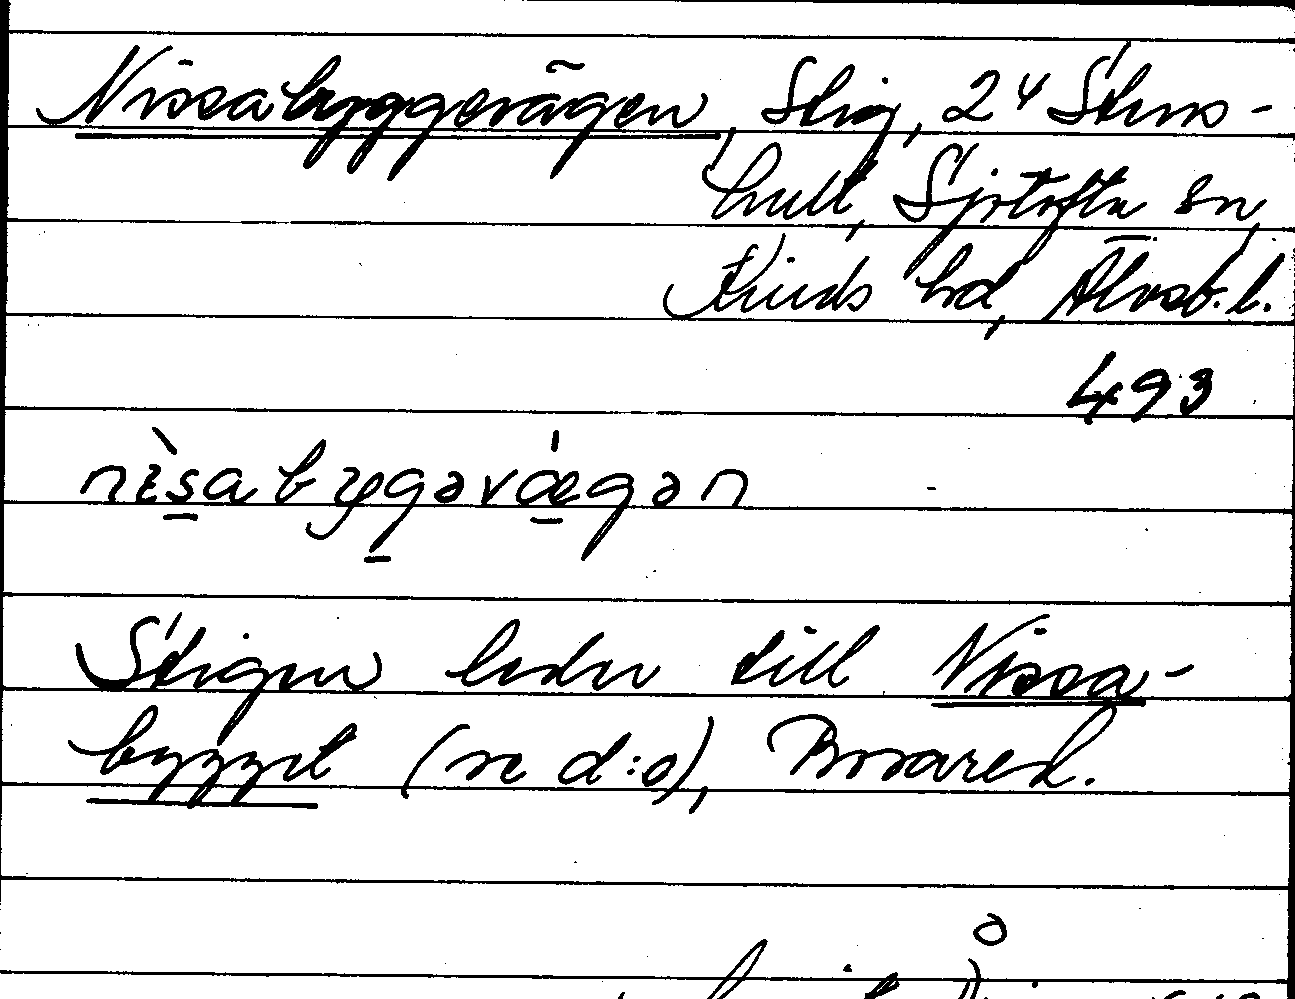 Nissabyggevägen, Stig, 24 Stens-
hult, Sjötofta sn,
Kinds hd, Älvsb. l.
493
nìsabygəvǽgən
Stigen leder till Nissa-
bygget (se d:o), Bosared.